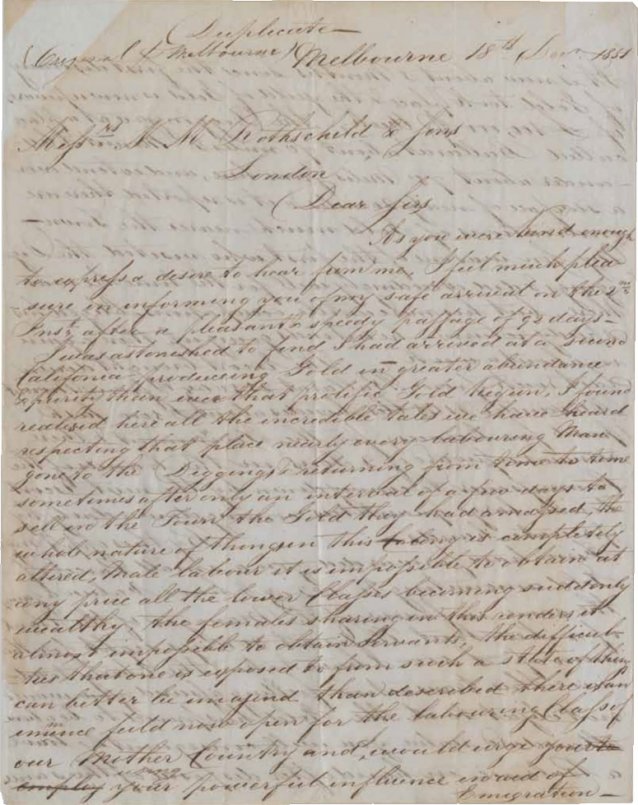 Duplicate
(Original p Melbourne) Melbourne 18th Decr 1851
Messrs N M Rothschild & Sons
London
Dear Sirs
As you were kind enough
to express a desire to hear from me, I feel much plea
sure in informing you of my safe arrival on the 2nd
Inst after a pleasant & speedy passage of 92 days—
I was astonished to find I had arrived at a second
California, producing Gold in greater abundance
& purity than even that prolific Gold Region, I found
realised here all the incredible tales we have heard
respecting that place nearly every labouring Man
gone to the Diggings & returning from time to time
sometimes after only an interval of a few days to
sell in the Town the Gold they had amassed, the
whole nature of things in this Colony is completely
altered, Male labour it is impossible to obtain at
any price all the lower Classes becoming suddenly
wealthy the females sharing in this renders it
almost impossible to obtain Servants, the difficul
ties that one is exposed to from such a state of thin
can better be imagined than described there is an
immense field now open for the labouring Class of
our Mother Country and, would urge your to
employ your powerful influence in aid of
Emigration—